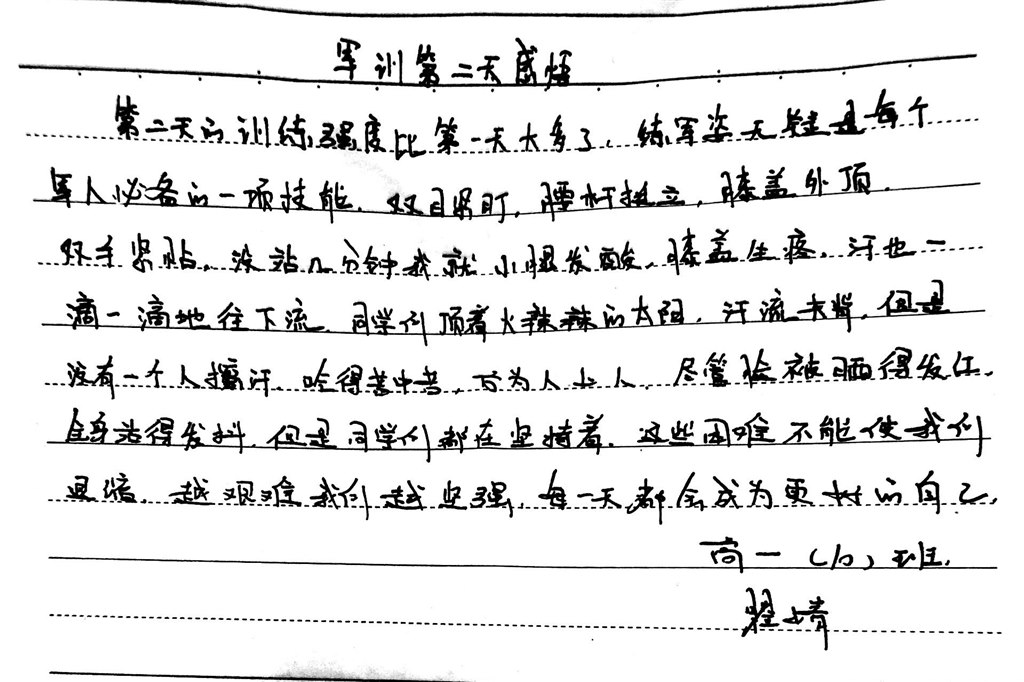 军训第二天感悟
第二天的训练强度比第一天大多了，练军姿无疑是每个
军人必备的一项技能。双目紧盯，腰杆挺立，膝盖外顶，
双手紧贴，没站几分钟我就小腿发酸，膝盖生疼，汗也一
滴一滴地往下流。同学们顶着火辣辣的太阳，汗流夹背，但是
没有一个人擦汗。吃得苦中苦，方为人上人，尽管脸被晒得发红，
全身站得发抖，但是同学们都在坚持着，这些困难不能使我们
退缩，越艰难我们越坚强，每一天都会成为更好的自己。
高一（10）班，
翟婧